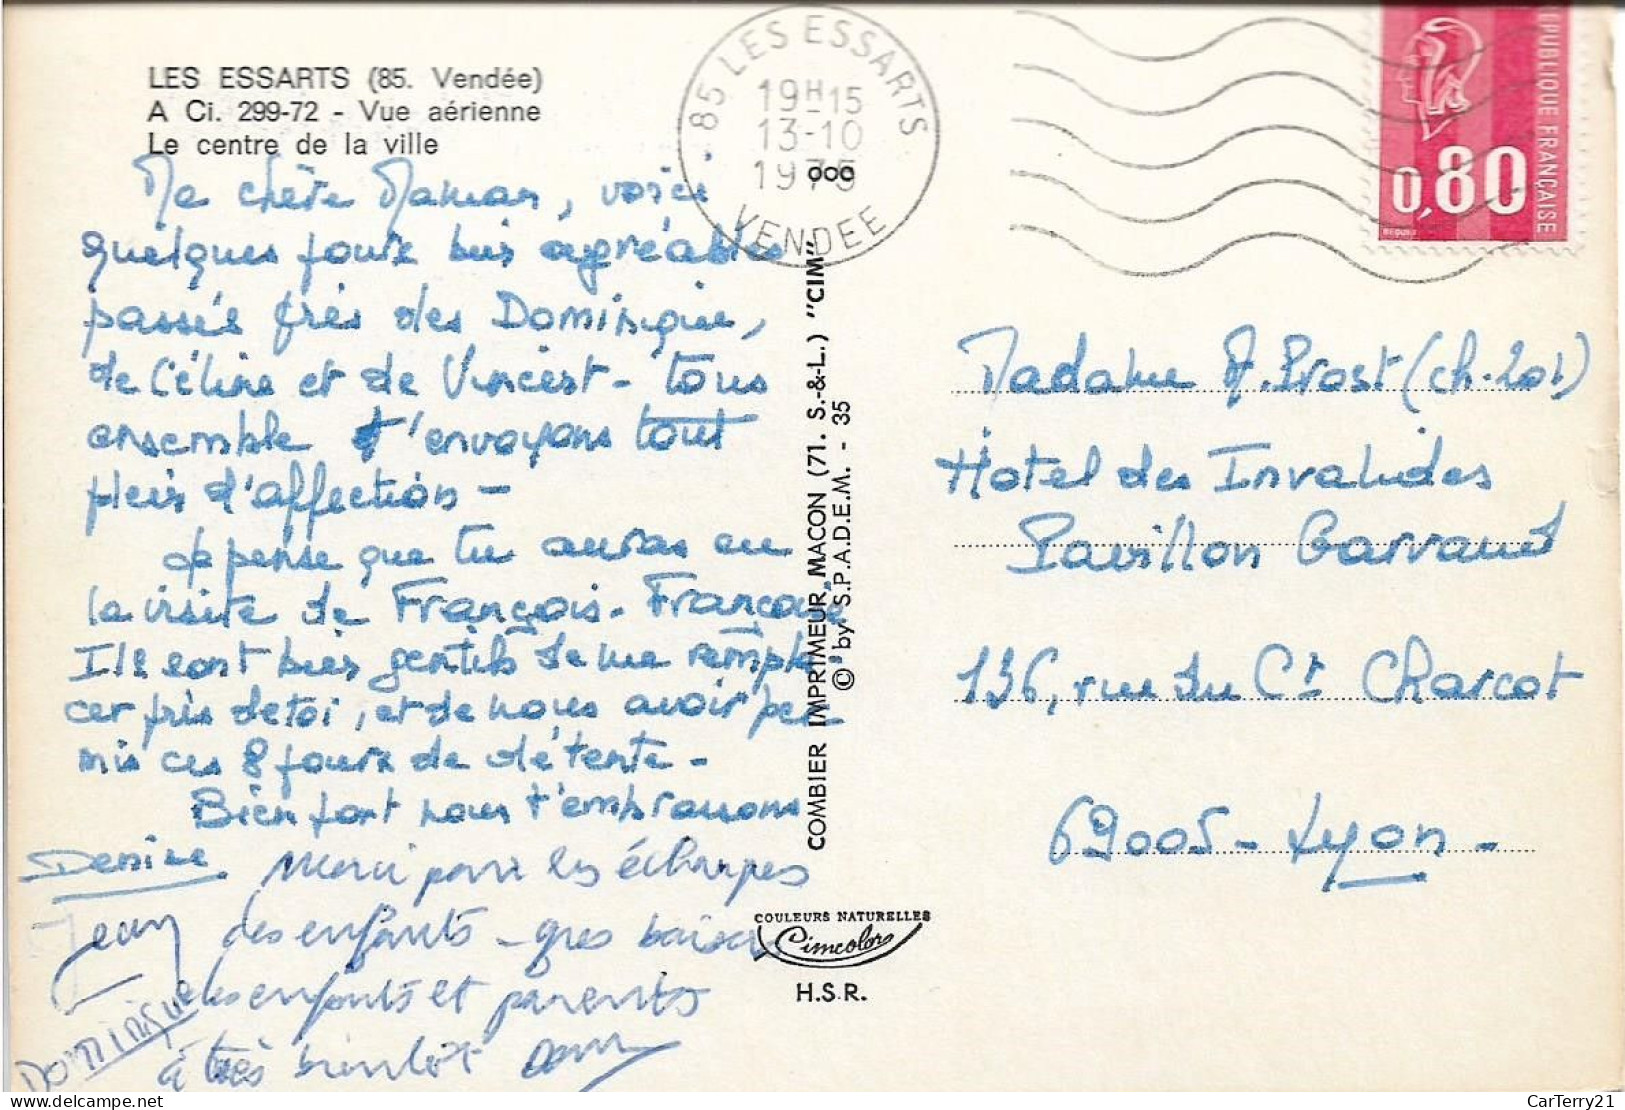 LES ESSARTS (85. Vendée)
A Ci. 299-72 - Vue aérienne
Le centre de la ville
Ma chère Maman, voici
quelques jours bien agréables
passés près des Dominique,
de Céline et de Vincent - tous
ensemble t'envoyons tout
plein d'affection -
Je pense que tu auras eu
la visite de François - Françoise
Ils sont bien gentils de me rempla
cer près de toi, et de nous avoir per
mis ces 8 jours de détente -
Bien fort nous t'embrassons
Denise
Merci pour les écharpes
Jean
des enfants - gros baisers
des enfants et parents
Dominique
à très bientôt
85 LES ESSARTS
19H15
13-10
1975
VENDEE
ooo
RÉPUBLIQUE FRANÇAISE
0,80
BEQUET
COMBIER IMPRIMEUR MACON (71. S.-&-L.) "CIM"
© by S.P.A.D.E.M. - 35
COULEURS NATURELLES
Cimcolor
H.S.R.
Madame A. Prost (ch. 201)
Hôtel des Invalides
Pavillon
136, rue du Ct Charcot
69005 - Lyon -
CarTerry21
delcampe.net